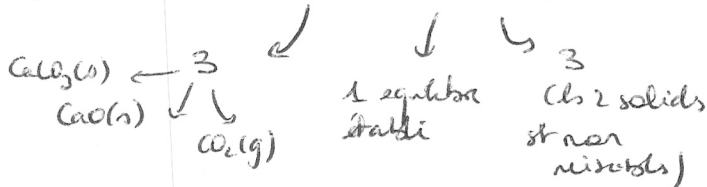 CaCO3(s) ← 3
CaO(s)
CO2(g)
1 equilibre
établi
3
(ls 2 solids
st non
miscibles)